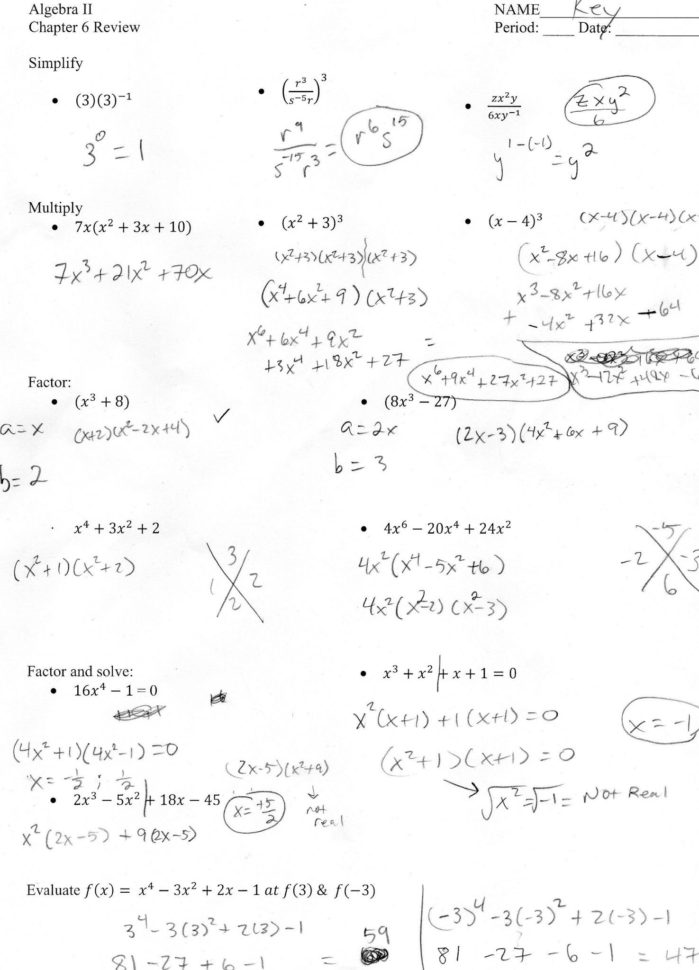 Algebra II
NAME Key
Chapter 6 Review
Period: ____ Date: ____
Simplify
• (3)(3)⁻¹
3⁰ = 1
• (r³/s⁻⁵r)³
r⁹/s⁻¹⁵r³ = r⁶s¹⁵
• zx²y/6xy⁻¹
zxy²/6
y¹⁻⁽⁻¹⁾ = y²
Multiply
• 7x(x² + 3x + 10)
7x³ + 21x² + 70x
• (x² + 3)³
(x²+3)(x²+3)(x²+3)
(x⁴+6x²+9)(x²+3)
x⁶+6x⁴+9x²
+3x⁴+18x²+27
=
x⁶+9x⁴+27x²+27
• (x − 4)³
(x-4)(x-4)(x
(x²-8x+16)(x-4)
x³-8x²+16x
+ -4x²+32x+64
x³-12x²+48x-6
Factor:
• (x³ + 8)
a=x
(x+2)(x²-2x+4) ✓
b=2
• (8x³ − 27)
a=2x
(2x-3)(4x²+6x+9)
b=3
· x⁴ + 3x² + 2
(x²+1)(x²+2)
3
1 2
2
• 4x⁶ − 20x⁴ + 24x²
4x²(x⁴-5x²+6)
4x²(x²-2)(x²-3)
-5
-2 -3
6
Factor and solve:
• 16x⁴ − 1 = 0
(4x²+1)(4x²-1)=0
x = -1/2 ; 1/2
• x³ + x² + x + 1 = 0
x²(x+1)+1(x+1)=0
x = -1
(x²+1)(x+1)=0
√x² = √-1 = Not Real
• 2x³ − 5x² + 18x − 45
(2x-5)(x²+9)
x = +5/2
not
real
x²(2x-5)+9(2x-5)
Evaluate f(x) = x⁴ − 3x² + 2x − 1 at f(3) & f(−3)
3⁴-3(3)²+2(3)-1
81-27+6-1 = 59
(-3)⁴-3(-3)²+2(-3)-1
81 -27 -6 -1 = 47